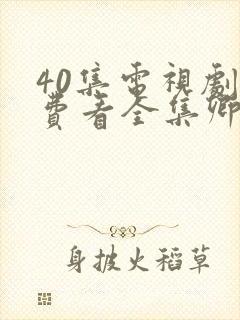 40集電視劇
費看全集卿
身披火稻草